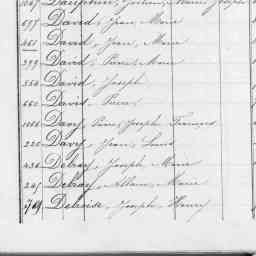 697 David, Jean, Marie
461 David, Jean, Marie
399 David, Pierre, Marie
550 David, Joseph
660 David, Pierre
1006 Davy, Pierre, Joseph, François
220 Davy, Jean, Louis
436 Delray, Joseph, Marie
245 Delray, Marie
769 Delvoise, Joseph, Henry